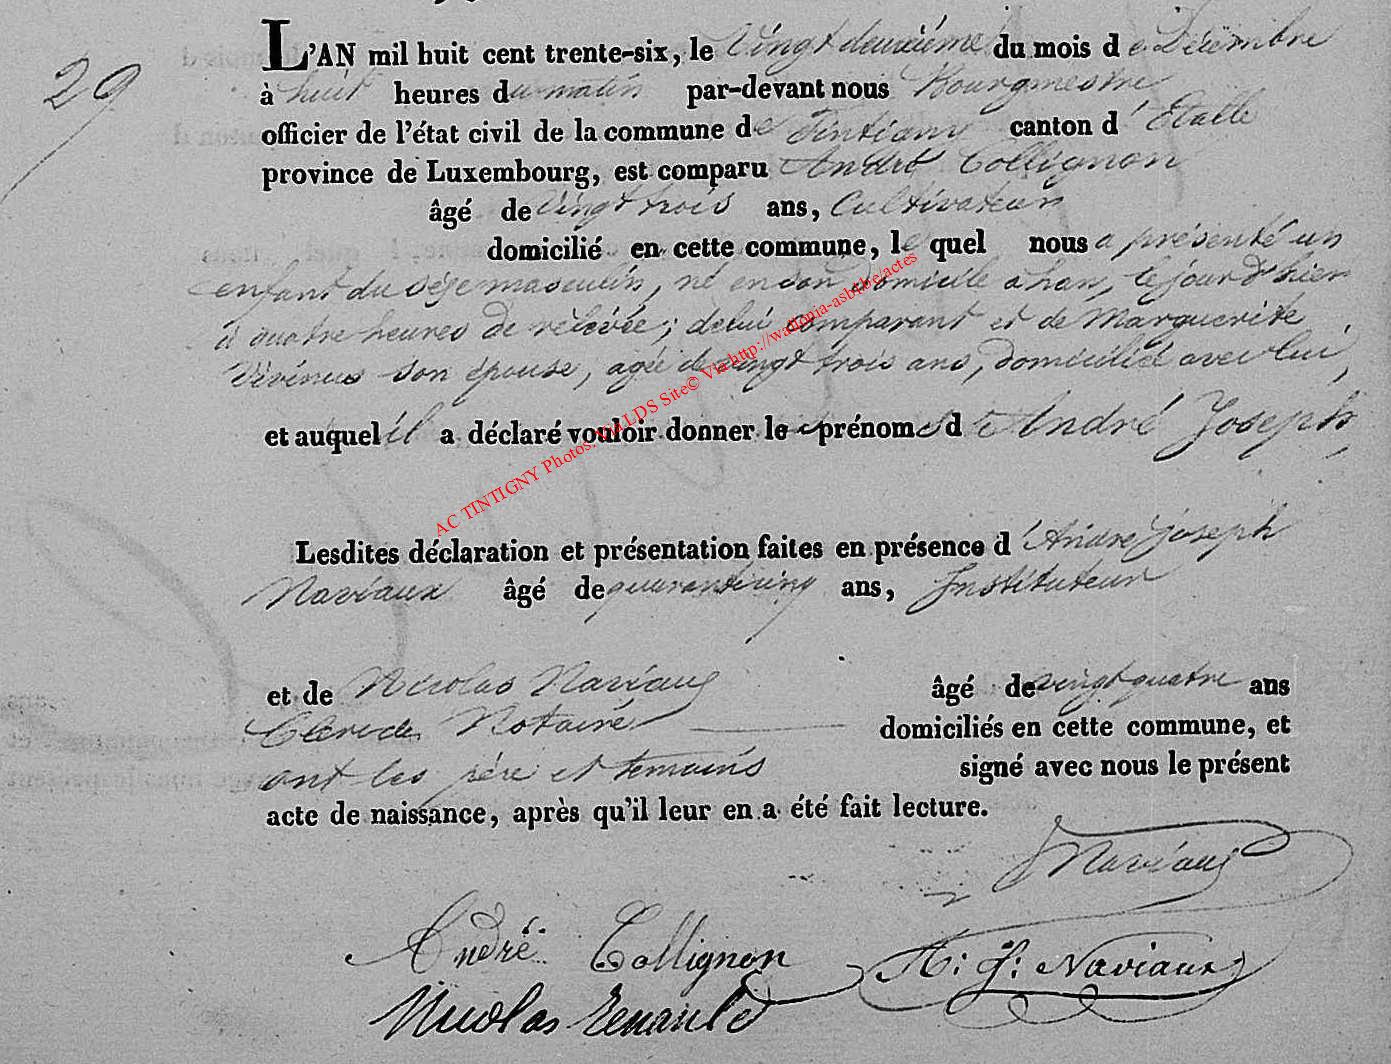 29
L'AN mil huit cent trente-six, le Vingt deuxième du mois de Décembre
à huit heures du matin par-devant nous Bourgmestre
officier de l'état civil de la commune de Tintigny canton d'Etalle
province de Luxembourg, est comparu André Collignon
âgé de vingt trois ans, Cultivateur
domicilié en cette commune, lequel nous a présenté un
enfant du sexe masculin, né en son domicile a han, le jour d'hier
à quatre heures de relevée; de lui comparant et de Marguerite
Vivinus son épouse, agée de vingt trois ans, domiciliée avec lui,
et auquel il a déclaré vouloir donner le prénoms de André Joseph,
AC TINTIGNY Photos: VIALDS Site© Via http://wallonia-asbl.be/actes
Lesdites déclaration et présentation faites en présence d'André joseph
Naviaux âgé de quarante cinq ans, Instituteur
et de Nicolas Naviaux âgé de vingt quatre ans
Clerc de Notaire domiciliés en cette commune, et
ont les père et temoins signé avec nous le présent
acte de naissance, après qu'il leur en a été fait lecture.
Naviaux
André Collignon A: J: Naviaux
Nicolas Renauld